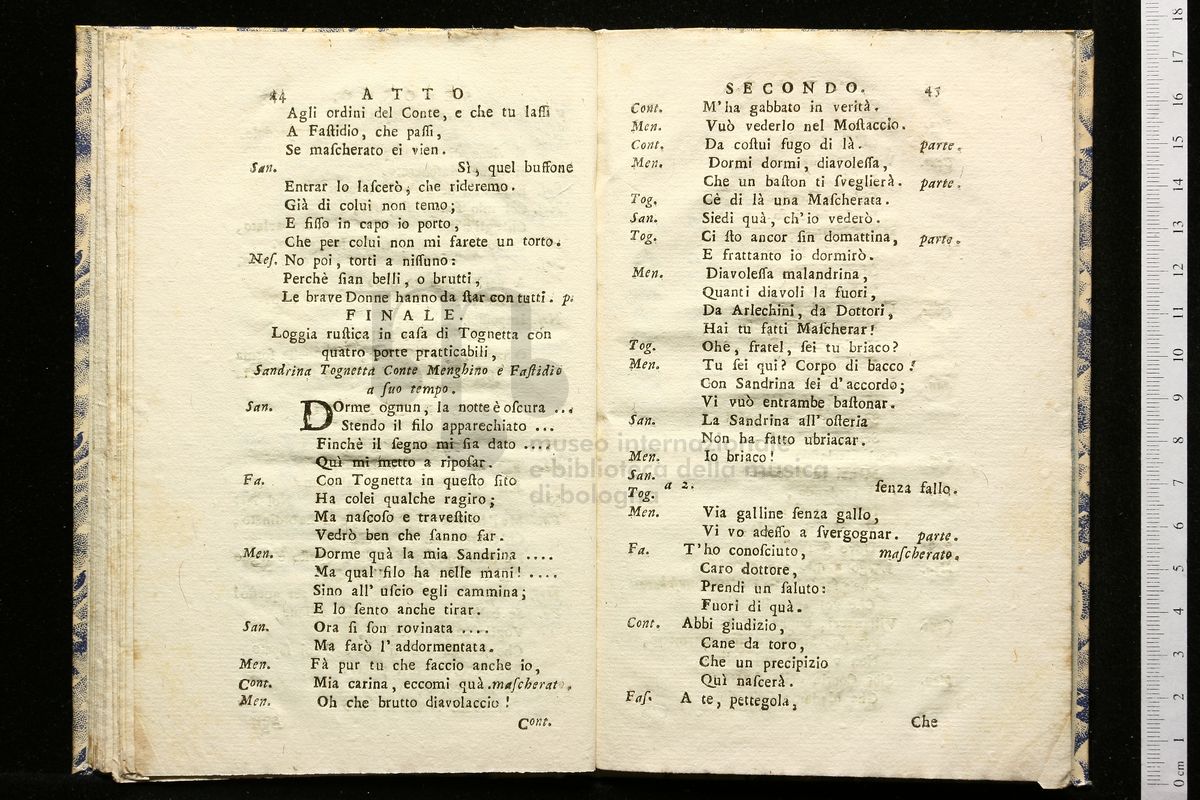 44 ATTO
Agli ordini del Conte, e che tu laſſi
A Faſtidio, che paſſi,
Se maſcherato ei vien.
San. Sì, quel buffone
Entrar lo laſcerò, che rideremo.
Già di colui non temo;
E fiſſo in capo io porto,
Che per colui non mi farete un torto.
Neſ. No poi, torti a niſſuno:
Perchè ſian belli, o brutti,
Le brave Donne hanno da ſtar con tutti. p.
FINALE.
Loggia ruſtica in caſa di Tognetta con
quatro porte pratticabili,
Sandrina Tognetta Conte Menghino e Faſtidio
a ſuo tempo.
San. DOrme ognun, la notte è oſcura ...
Stendo il filo apparechiato ...
Finchè il ſegno mi ſia dato ....
Quì mi metto a ripoſar.
Fa. Con Tognetta in queſto ſito
Ha colei qualche ragiro;
Ma naſcoſo e traveſtito
Vedrò ben che ſanno far.
Men. Dorme quà la mia Sandrina ....
Ma qual filo ha nelle mani! ....
Sino all' uſcio egli cammina;
E lo ſento anche tirar.
San. Ora ſi ſon rovinata ....
Ma farò l' addormentata.
Men. Fà pur tu che faccio anche io,
Cont. Mia carina, eccomi quà. maſcherato.
Men. Oh che brutto diavolaccio!
Cont.
SECONDO. 45
Cont. M' ha gabbato in verità.
Men. Vuò vederlo nel Moſtaccio.
Cont. Da coſtui fugo di là. parte.
Men. Dormi dormi, diavoleſſa,
Che un baſton ti ſveglierà. parte.
Tog. Cè di là una Maſcherata.
San. Siedi quà, ch' io vederò.
Tog. Ci ſto ancor ſin domattina, parte.
E frattanto io dormirò.
Men. Diavoleſſa malandrina,
Quanti diavoli la fuori,
Da Arlechini, da Dottori,
Hai tu fatti Maſcherar!
Tog. Ohe, fratel, ſei tu briaco?
Men. Tu ſei qui? Corpo di bacco!
Con Sandrina ſei d' accordo;
Vi vuò entrambe baſtonar.
San. La Sandrina all' oſteria
Non ha fatto ubriacar.
Men. Io briaco!
San.
Tog. a 2. ſenza fallo.
Men. Via galline ſenza gallo,
Vi vo adeſſo a ſvergognar. parte.
Fa. T'ho conoſciuto, maſcherato.
Caro dottore,
Prendi un ſaluto:
Fuori di quà.
Cont. Abbi giudizio,
Cane da toro,
Che un precipizio
Quì naſcerà.
Faſ. A te, pettegola,
Che
museo internazionale
e biblioteca della musica
di bologna
18
17
16
15
14
13
12
11
10
9
8
7
6
5
4
3
2
1
0 cm